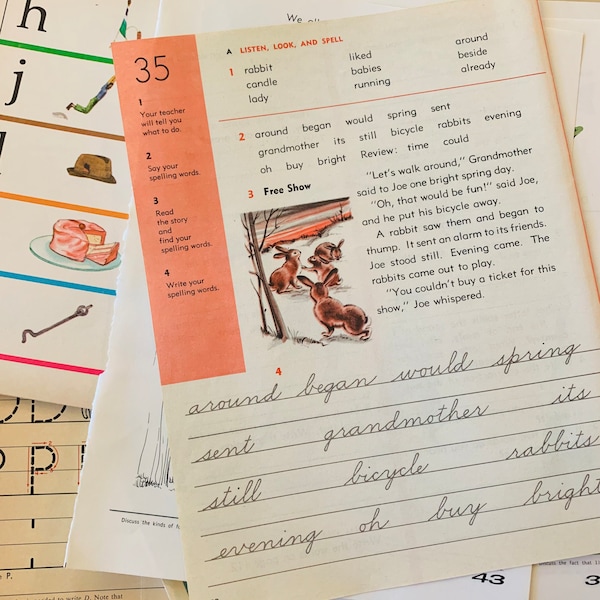 We
h
j
35
A LISTEN, LOOK, AND SPELL
1 rabbit liked around
candle babies beside
lady running already
1
Your teacher
will tell you
what to do.
2
Say your
spelling words.
3
Read
the story
and
find your
spelling words.
4
Write your
spelling words.
2 around began would spring sent
grandmother its still bicycle rabbits evening
oh buy bright Review: time could
3 Free Show
"Let's walk around," Grandmother
said to Joe one bright spring day.
"Oh, that would be fun!" said Joe,
and he put his bicycle away.
A rabbit saw them and began to
thump. It sent an alarm to its friends.
Joe stood still. Evening came. The
rabbits came out to play.
"You couldn't buy a ticket for this
show," Joe whispered.
4
around began would spring
sent grandmother its
still bicycle rabbits
evening oh buy bright
Discuss the kinds of
43
Discuss the fact that
P P
e P.
to write D. Note that